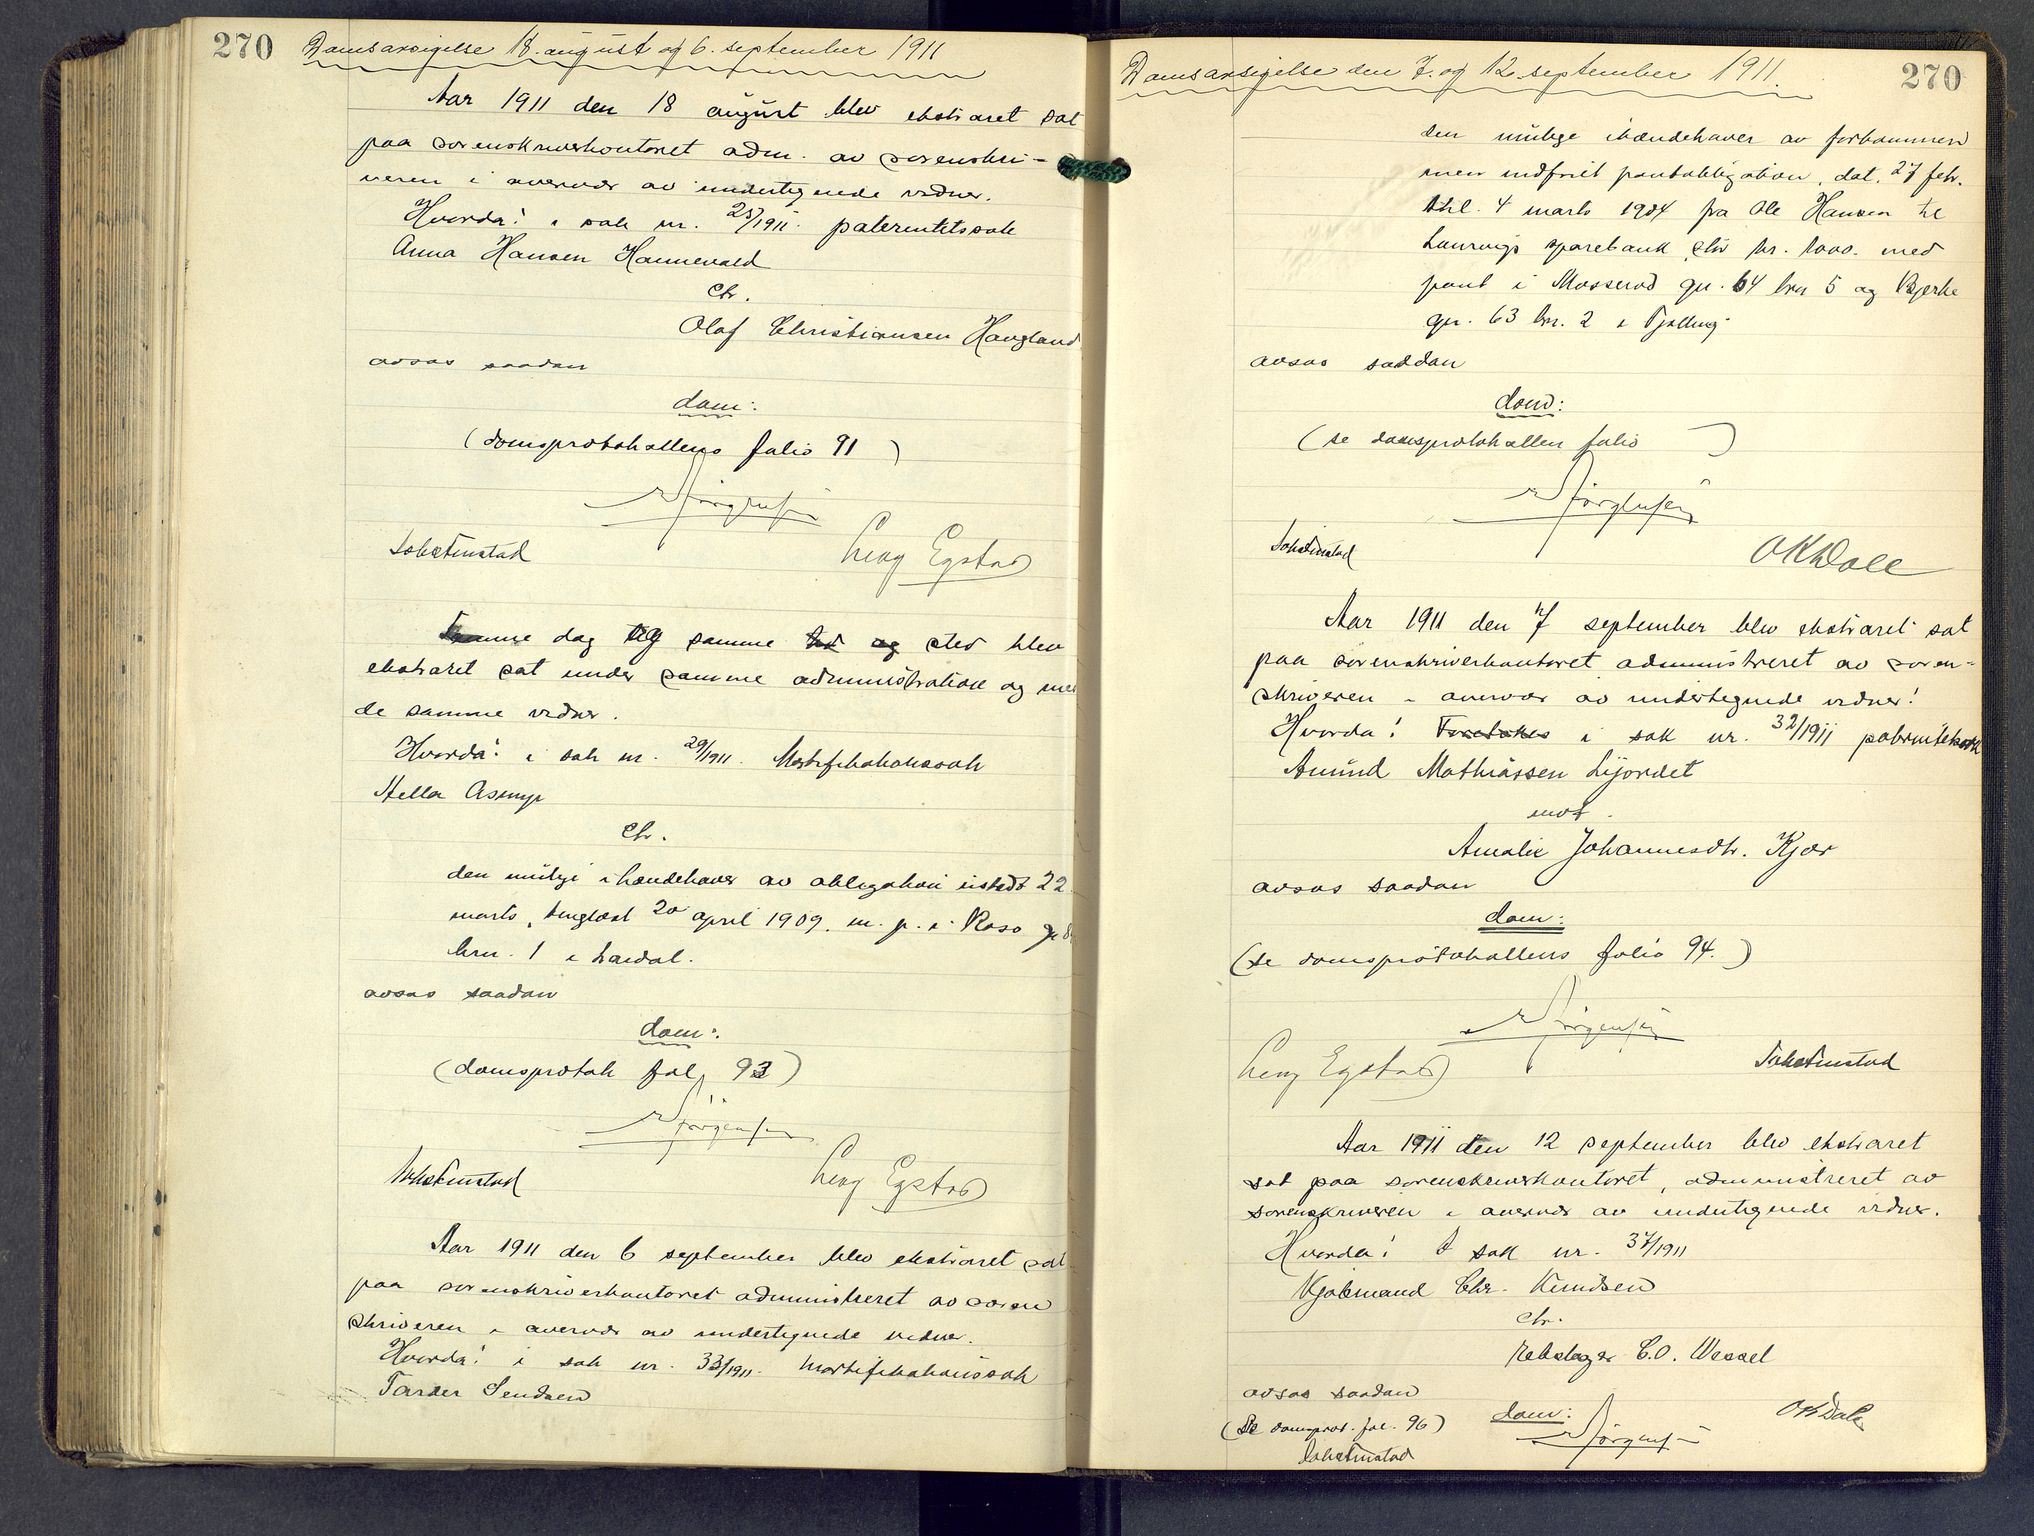 270
Domsavsigelse 18. august og 6. september 1911
Aar 1911 den 18 august blev ekstraret sat
paa sorenskriverkontoret adm. av sorenskri-
veren i overvær av undertegnede vidner.
Hvorda: i sak nr. 25/1911. paternitetssak
Anna Hansen Hannevold
ctr.
Olaf Christiansen Haugland
avsas saadan
dom:
(domsprotokollens folio 91)
Jørgensen
Egstad
Samme dag og samme sted blev
ekstraret sat under samme administration og med
de samme vidner.
Hvorda: i sak nr. 29/1911. Mortifikationssak
Hella
ctr.
den mulige ihændehaver av obligation utstedt 22
marts, tinglæst 20 april 1909. m. p. i gr 8
brn. 1 i Lardal.
avsas saadan
dom:
(domsprotok fol. 93)
Jørgensen
Egstad
Aar 1911 den 6 september blev ekstraret sat
paa sorenskriverkontoret administreret av soren
skriveren i overvær av undertegnede vidner.
Hvorda: i sak nr. 33/1911. Mortifikationssak
270
Domsavsigelse den 7. og 12 september 1911.
den mulige ihændehaver av forkommen
men indfriet pantobligation, dat. 27 febr.
thl. 4 marts 1904 fra Ole Hansen til
Laurvigs sparebank stor kr. 1000. med
pant i Masserød gr. 64 brn 5 og Bjerke
gr. 63 brn. 2 i Tjølling
avsas saadan
dom:
(se domsprotokollen folio )
Jørgensen
Aar 1911 den 7 september blev ekstraret sat
paa sorenskriverkontoret administreret av soren-
skriveren i overvær av undertegnede vidner!
Hvorda! Foretokes i sak nr. 32/1911 paternitetssak
Amund Mathiassen Lijordet
mot.
Amalie Johannesdtr. Kjær
avsas saadan
dom:
(se domsprotokollens folio 94.)
Jørgensen
Egstad
Aar 1911 den 12 september blev ekstraret
sat paa sorenskriverkontoret, administreret av
sorenskriveren i overvær av undertegnede vidner.
Hvorda! I sak nr. 37/1911
Kjøbmand Chr. Knudsen
ctr.
Rebslager C.O. Wessel
avsas saadan
dom:
(Se domsprot. fol. 96)
Jørgensen